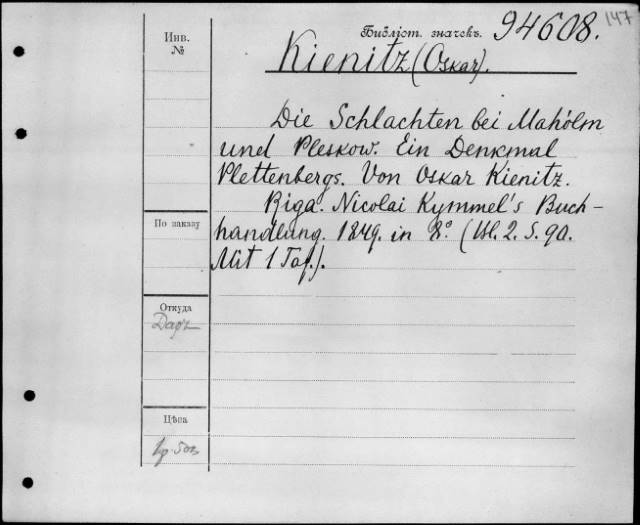 147
Инв. №
Библіот. значекъ. 94608.
Kienitz (Oskar).
Die Schlachten bei Maholm
und Pleskow. Ein Denkmal
Plettenbergs. Von Oskar Kienitz.
Riga. Nicolai Kymmel's Buch-
handlung. 1849. in 8º (Bl. 2. S. 90.
Mit 1 Taf.).
По заказу
Откуда
Даръ
Цѣна